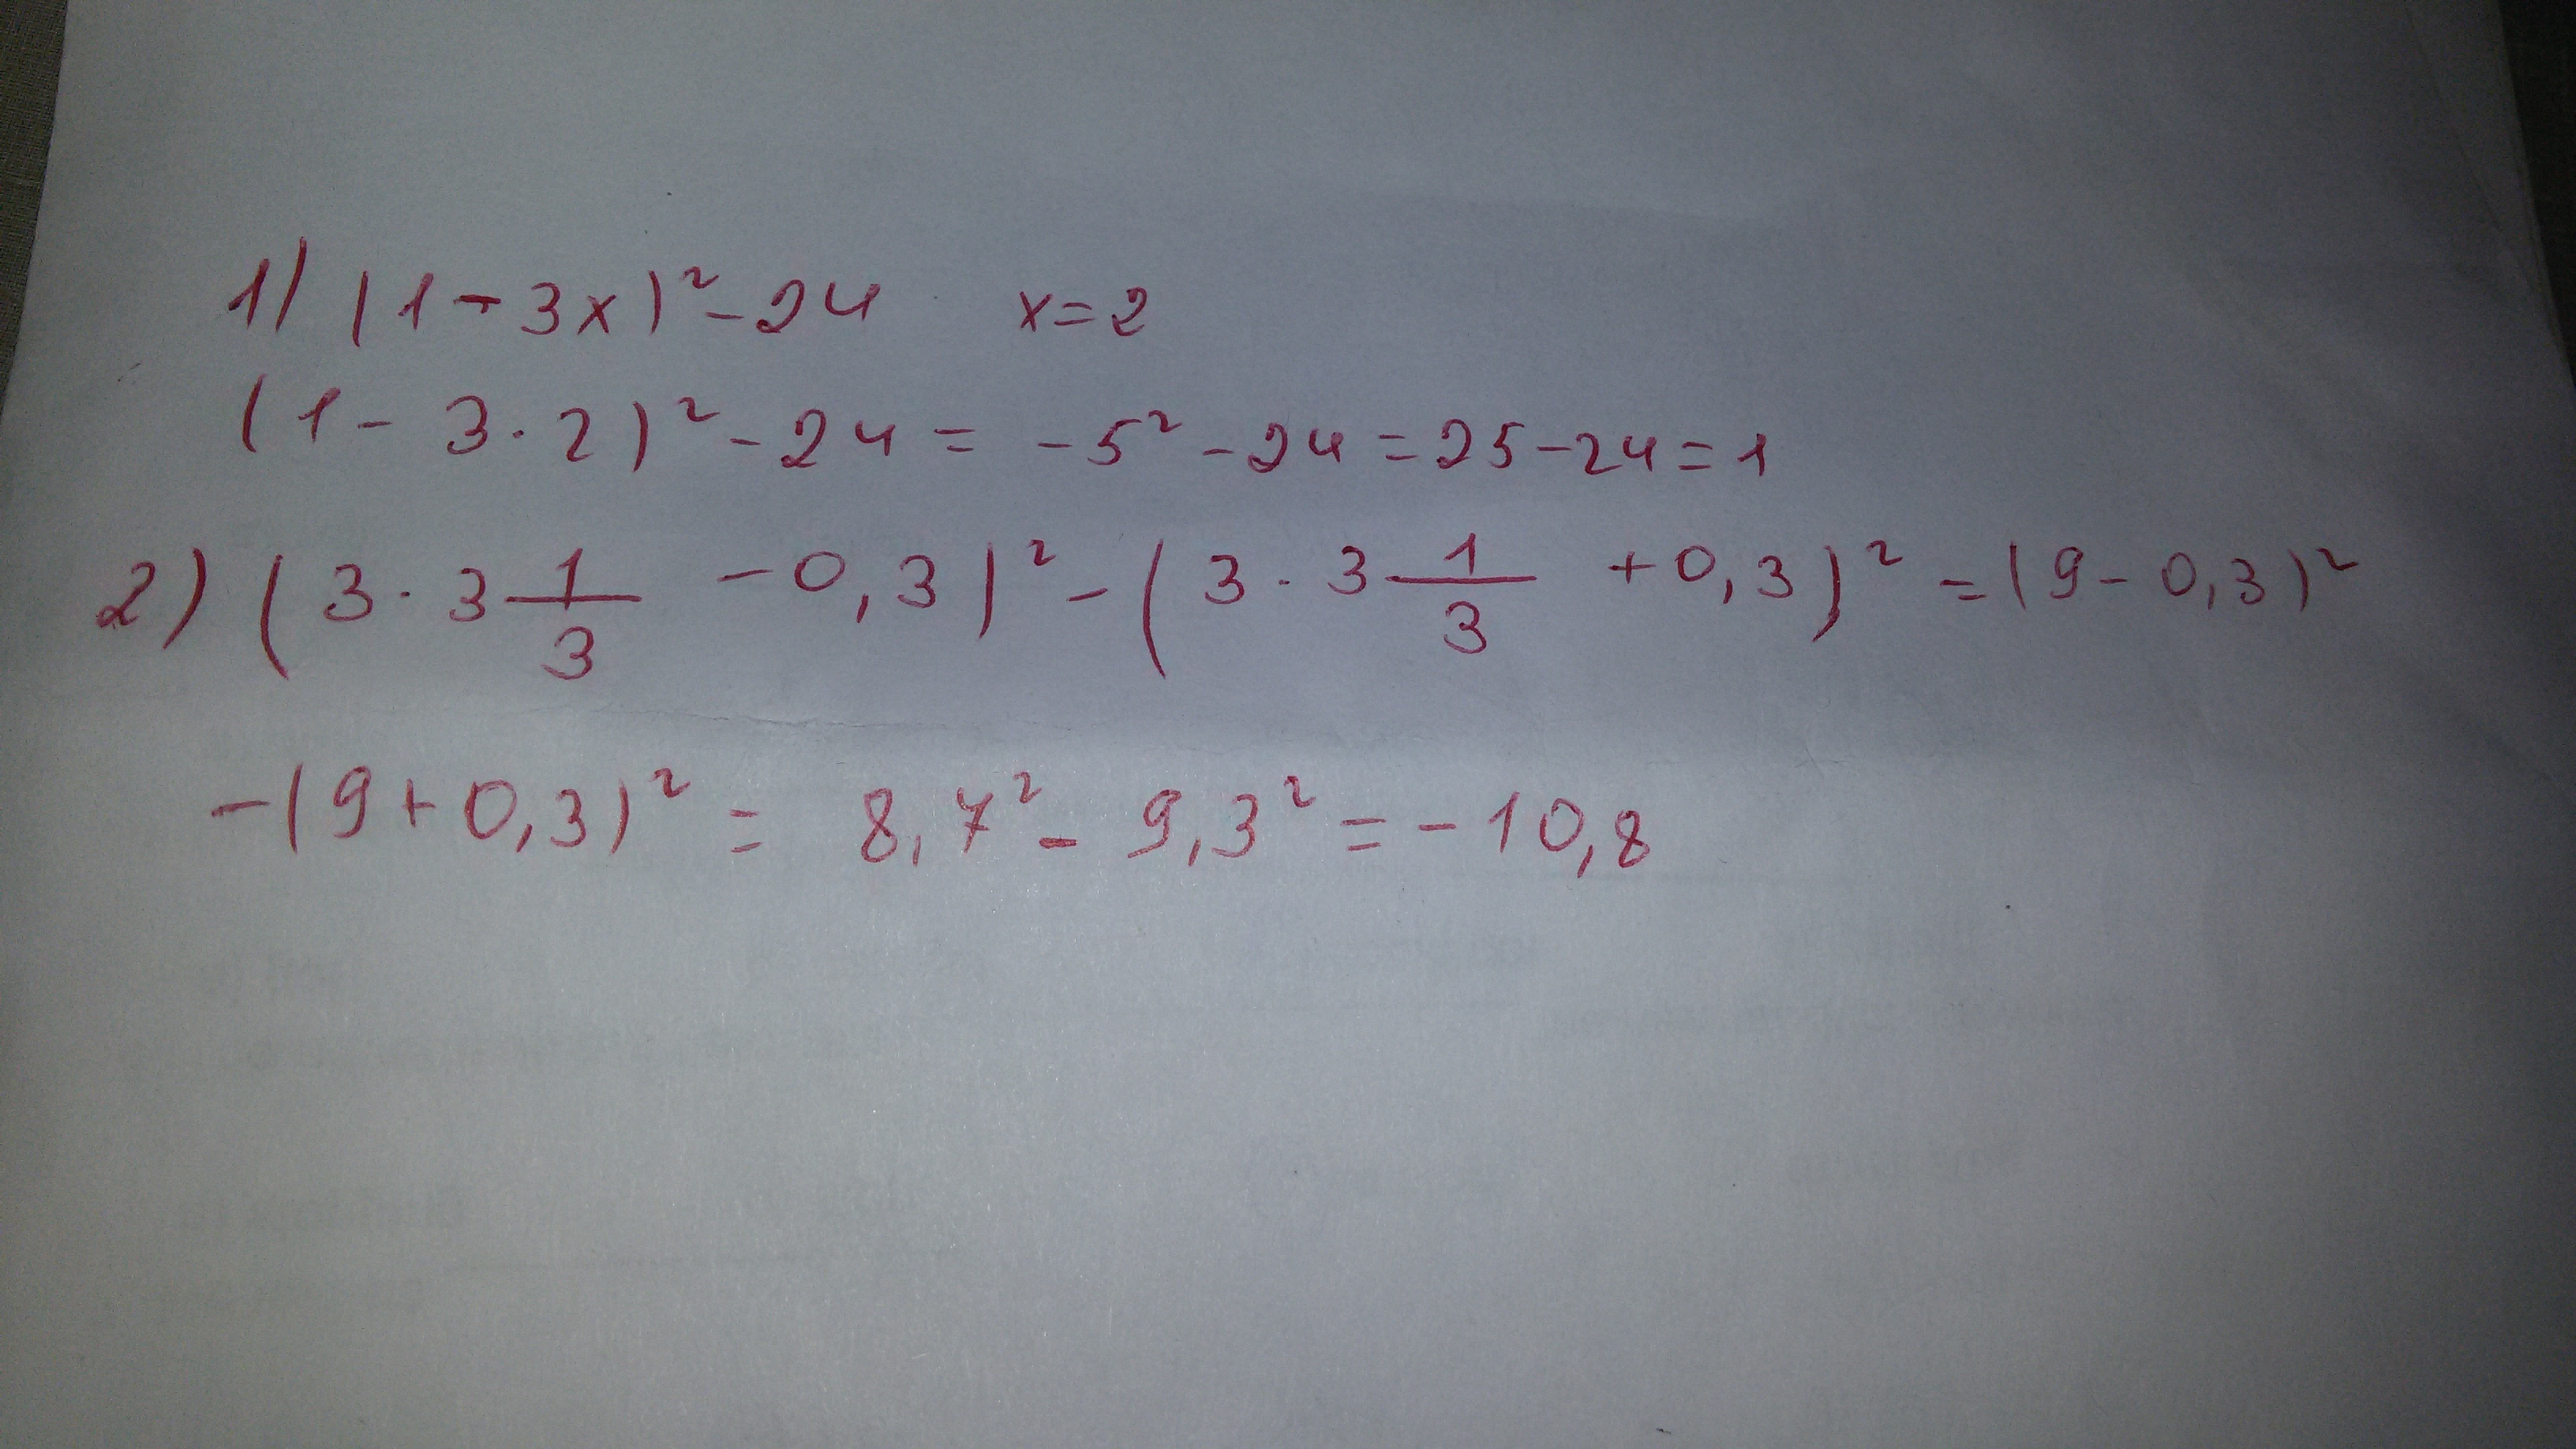 1) (1-3x)²-24 x=2
(1-3·2)²-24=-5²-24=25-24=1
2) (3·3 1/3 -0,3)²-(3·3 1/3 +0,3)²=(9-0,3)²
-(9+0,3)²= 8,7²-9,3²=-10,8